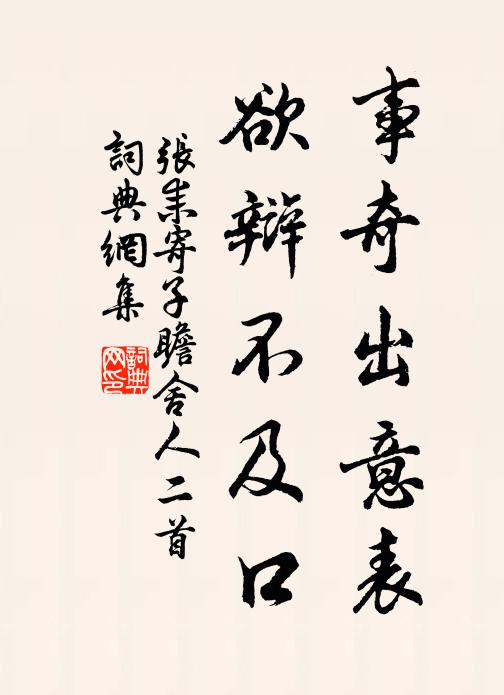 事奇出意表
欲辯不及口
張耒寄子瞻舍人二首
詞典網集
詞典
网印